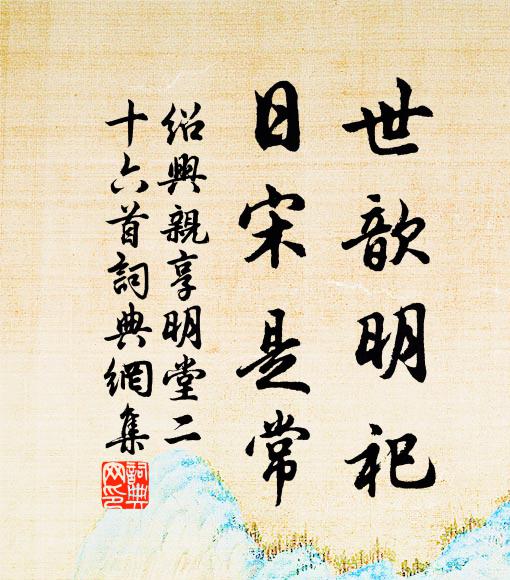 世歆明祀
日宋是常
绍興親享明堂二
十六首詞典網集
詞典网印